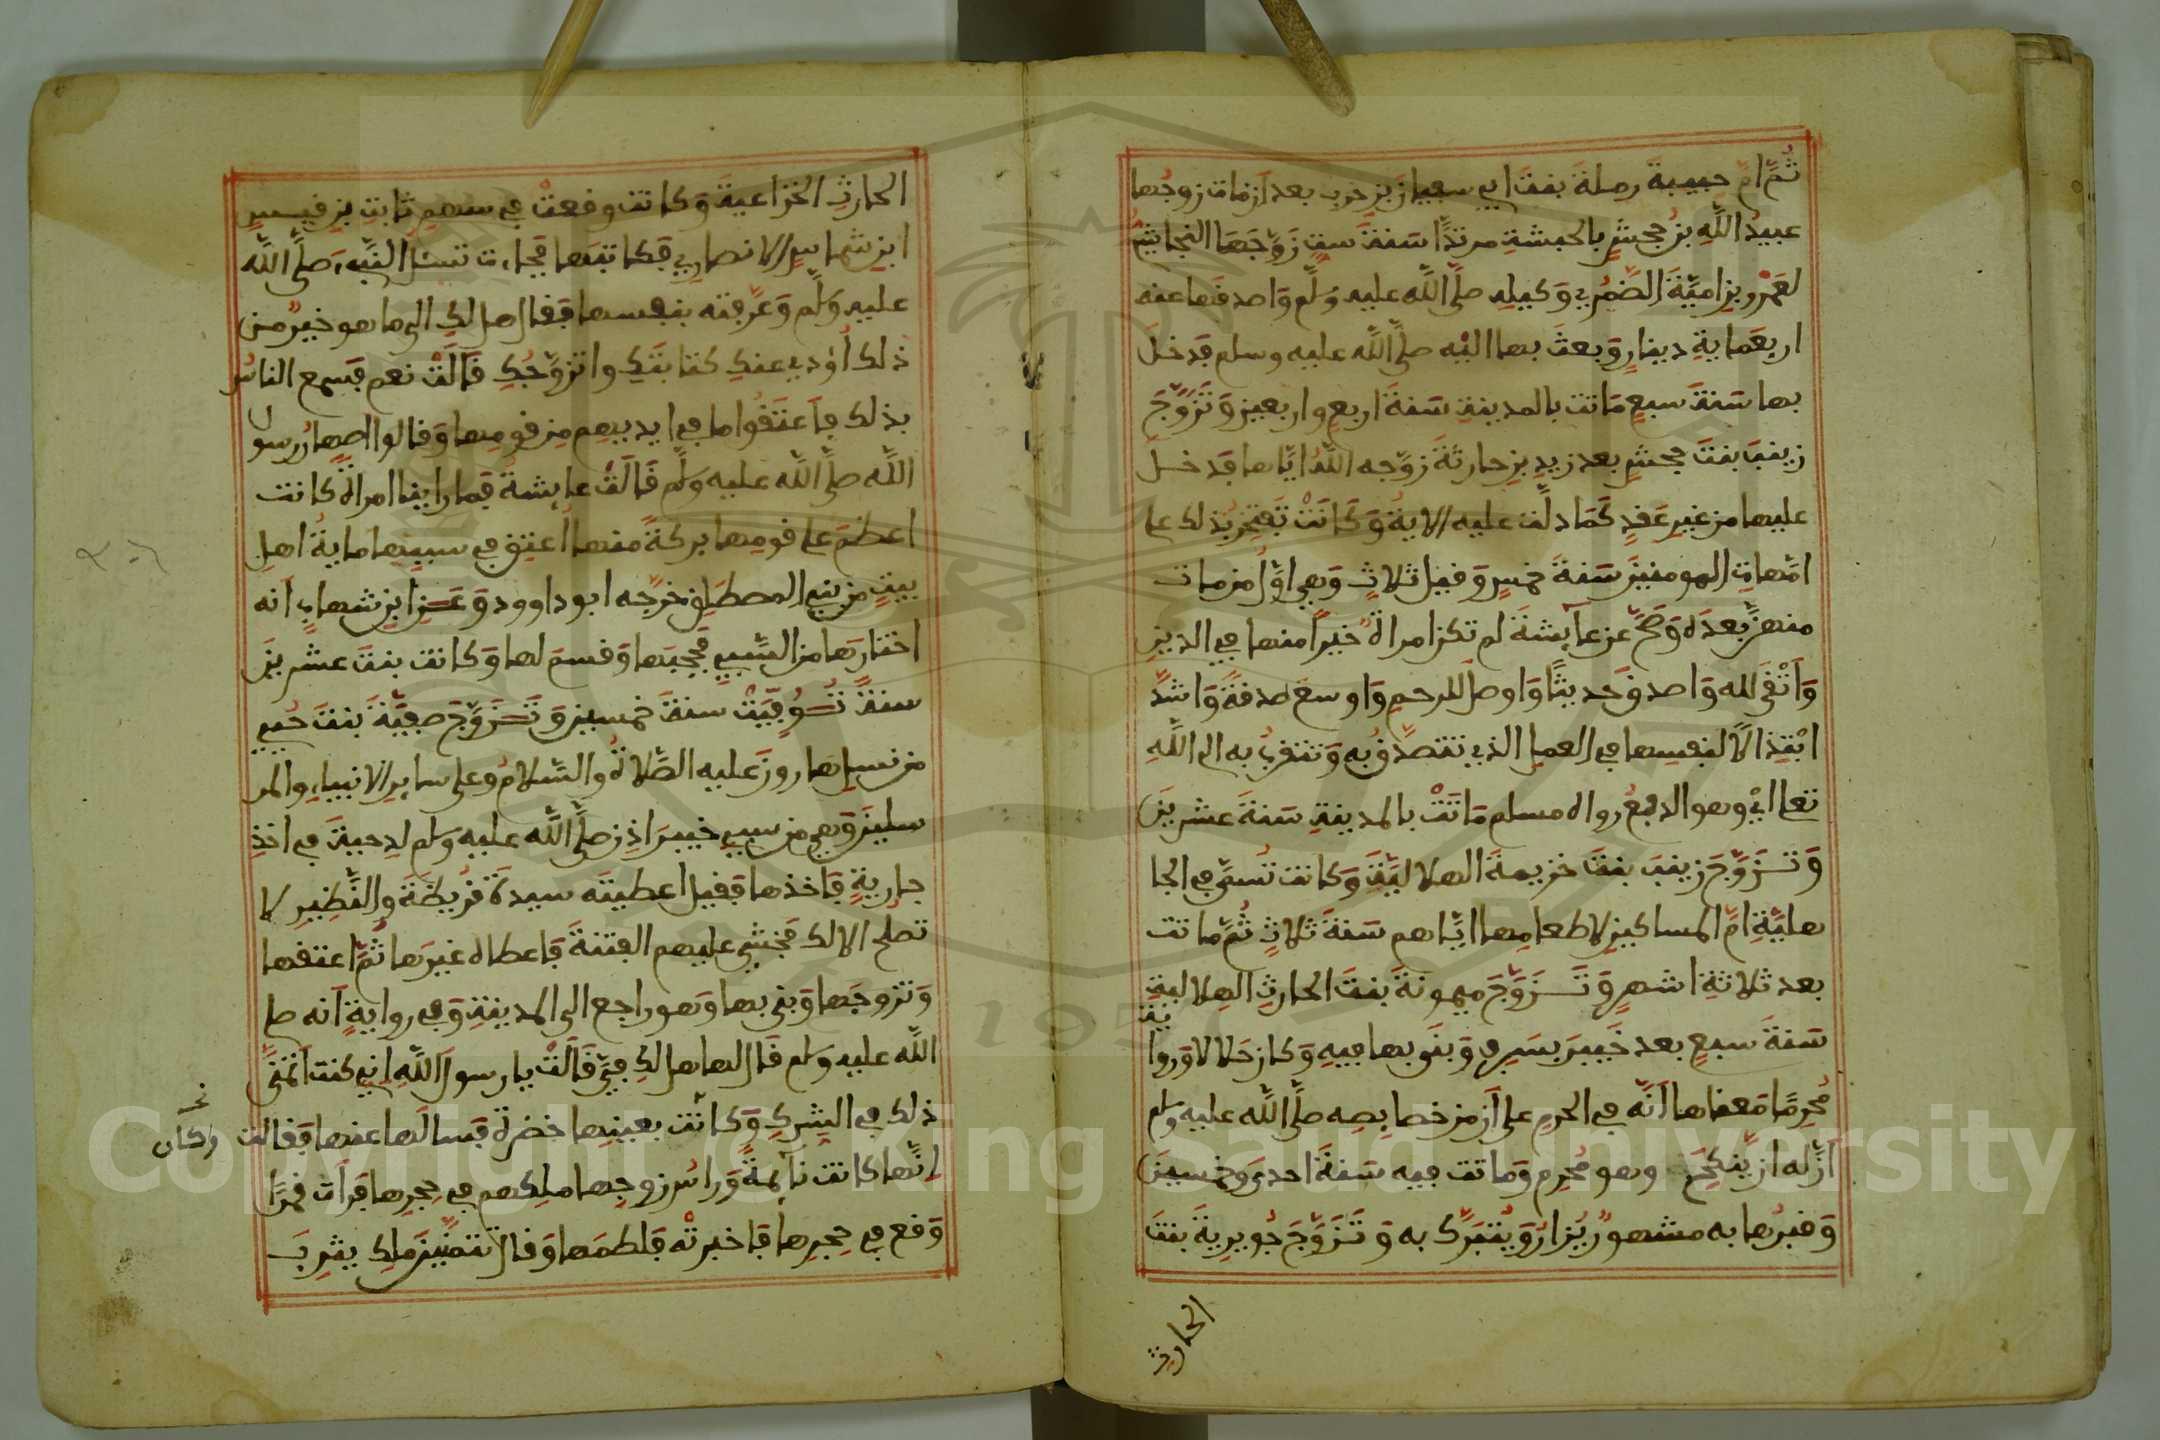 ثُمَّ امَّ حبيبةَ رملةَ بنتَ ابي سفيان بن حرب بعد أن مات زوجُها
عبيدُ اللَّهِ بنُ جحشٍ بالحبشةِ مرتدًّا سَنةَ ستٍّ زَوَّجَهَا النجاشيُّ
لعَمْرِو بنِ اميَّةَ الضَّمْرِي وَكيله صلَّى اللَّه عليه وَسلَّم وَاصدقَها عنه
اربعَماية دينارٍ وَبعثَ بها اليْه صلَّى اللَّه عليه وسلم فَدخلَ
بها سَنةَ سبعٍ مَاتت بالمدينةِ سَنةَ اربعٍ واربعين وَتَزَوَّجَ
زينبَ بنتَ جحشٍ بعد زيدِ بنِ حارثةَ زوَّجه اللَّهُ ايَّاها فدخلَ
عليها من غيرِ عَقدٍ كَمَا دلَّت عليه الايةُ وَكَانَتْ تَفتخِرُ بذلك على
امَّهاتِ المومنينَ سَنةَ خمسٍ وَقيل ثلاثٍ وَهي اوَّلُ من مات
منهنَّ بعدَه وَصحَّ عن عآيشةَ لم تكن امراةٌ خيرًا منها في الدينِ
وَأتْقى لله وَاصدقَ حديثًا وَاوصلَ للرحمِ وَاوسعَ صدقةً وَاشدَّ
ابْتِذالا لنفسِها في العملِ الذي تتصدَّقُ به وَتتقربُ به الى اللَّهِ
تعالى وهو الدبغُ رواه مسلم مَاتَتْ بالمدينةِ سَنةَ عشرينَ
وَتَزَوَّجَ زينبَ بنتَ خزيمةَ الهلاليَّةَ وَكانت تُسمَّى في الجا
هليَّةِ امَّ المساكينِ لاطعامِها ايَّاهم سَنةَ ثلاثٍ ثُمَّ ماتت
بعد ثلاثةِ اشهرٍ وَتَزَوَّجَ ميمونةَ بنتَ الحارثِ الهلاليةِ
سَنةَ سبعٍ بعد خَيبرَ بسَرِف وَبنَى بها فيهِ وَكان حَلالا وَرِوا
ية
مُحرِمًا مَعناها أنَّه في الحرمِ على أن من خصايصِه صلَّى اللَّه عليه وسلم
أنَّ له ان يَّنكِحَ وهو مُحرِم وَماتت فيه سَنةَ احدى وَخمسينَ
وَقبرُها به مشهورٌ يُزارُ وَيُتبرَّك به وَتَزَوَّجَ جُويريةَ بنتَ
الحارث
الحارثِ الخزاعيةَ وَكانت وقعتْ في سهمِ ثابتِ بنِ قيسٍ
ابنِ شماسٍ الانصارِي فكاتبَها فجاءت تسئلُ النبيءَ صلَّى اللَّه
عليه وَسلَّم وَعرَّفته بنفسها فقال هل لكِ الى ما هو خيرٌ من
ذلك اُؤدي عنكِ كتابتَكِ واتزوَّجُكِ قَالَتْ نعم فَسمع الناسُ
بذلك فأعتَقُوا ما في ايديهم مِن قومِها وَقالوا اصهارُ رسول
اللَّه صلَّى اللَّه عليه وَسلَّم قَالَتْ عايشةُ فما راينا امراةً كانت
اعظمَ على قومِها بركةً منها اُعتِق في سببِها مايةُ اهلِ
بيتٍ من بني المصطَلِقِ خرَّجه ابو داوود وَعَنِ ابنِ شهابٍ أنه
اختارَها من السَّبيِ فحجبَها وَقسمَ لها وَكانت بنتَ عشرينَ
سنةً تُوُفِّيَتْ سنةَ خمسين وَتَزَوَّجَ صفيَّةَ بنتَ حُيي
من نسلِ هارونَ عليه الصَّلاةُ والسَّلامُ وعلى سايرِ الانبياءِ والمر
سلينَ وَهي من سبيِ خيبرَ اذِن صلَّى اللَّه عليه وسلم لدِحيةَ في اخذِ
جاريةٍ فَاخذها فقيل اعطيتَه سيدةَ قُريظةَ وَالنَّضِيرِ لا
تصلُح الا لك فخشِي عليهم الفتنةَ فَاعطاه غيرَها ثُمَّ اعتقها
وَتزوجَها وَبنى بها وَهو راجع الى المدينةِ وَفي روايةٍ أنه صلى
اللَّه عليه وسلم قَال لها هل لكِ فِيَّ قَالَتْ يا رسولَ اللَّهِ اني كنت اتمنَّى
ذلك في الشركِ وَكانت بعينِها خضرةٌ فَسالَها عنها فقالت
وكان
انَّها كانت نآيمةً وَراسُ زوجِها ملِكهم في حِجرِها فَرأت قمرًا
وَقع في حِجرِها فَاخبرتْه فلطمَها وَقال تتمنَّينَ ملِك يثرِبَ